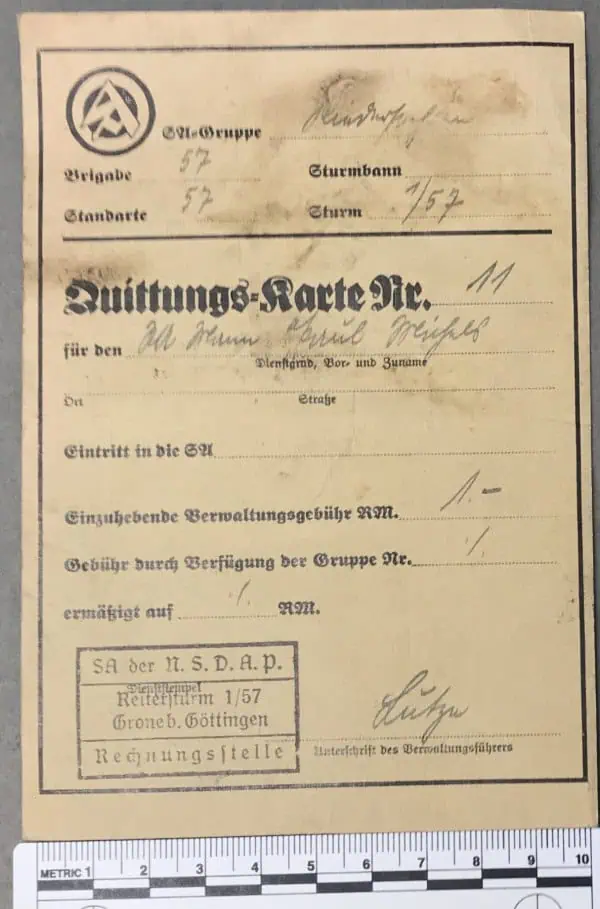 SA-Gruppe Niedersachsen
Brigade 57 Sturmbann
Standarte 57 Sturm 1/57
Quittungs-Karte Nr. 11
für den SA Mann Paul Michels
Dienstgrad, Vor- und Zuname
Ort Straße
Eintritt in die SA
Einzuhebende Verwaltungsgebühr RM. 1.-
Gebühr durch Verfügung der Gruppe Nr. ./.
ermäßigt auf ./. RM.
SA der N.S.D.A.P.
Dienststempel
Reitersturm 1/57
Groneb. Göttingen
Rechnungsstelle
Unterschrift des Verwaltungsführers
METRIC 1 2 3 4 5 6 7 8 9 10